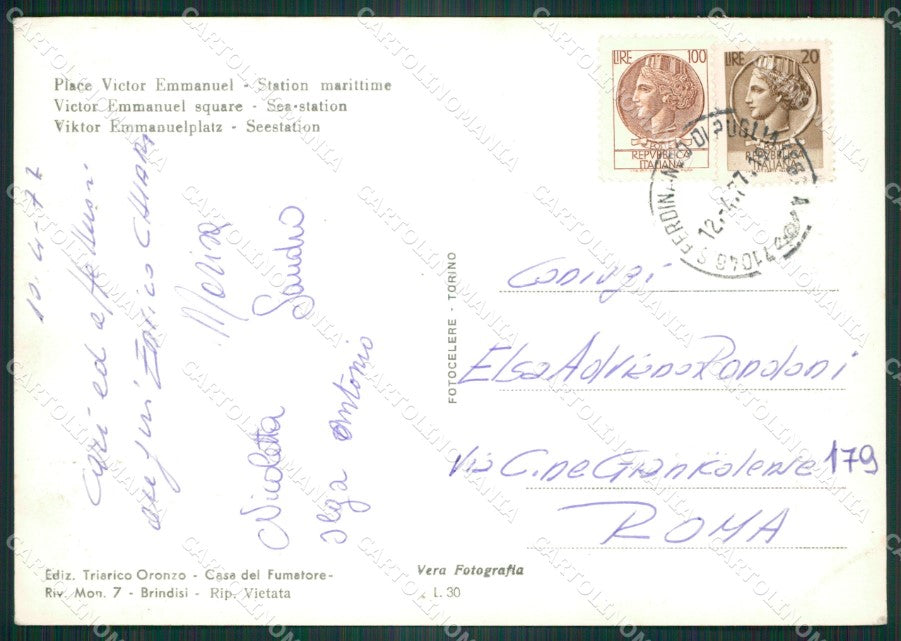 Place Victor Emmanuel - Station marittime
Victor Emmanuel square - Sea-station
Viktor Emmanuelplatz - Seestation
LIRE 100
REPVBBLICA
ITALIANA
LIRE 20
REPVBBLICA
ITALIANA
S. FERDINANDO DI PUGLIA
12.-4.77
71046
10-4-77
Cari ed affettuosi
auguri Enrico CHIARA
Marisa
Sandro
Nicoletta
Olga Antonio
FOTOCELERE - TORINO
Coniugi
Elsa Adriano Rondoni
Via C. ne Gianicolense 179
ROMA
Ediz. Triarico Oronzo - Casa del Fumatore-
Riv. Mon. 7 - Brindisi - Rip. Vietata
Vera Fotografia
L. 30
CARTOLINOMANIA